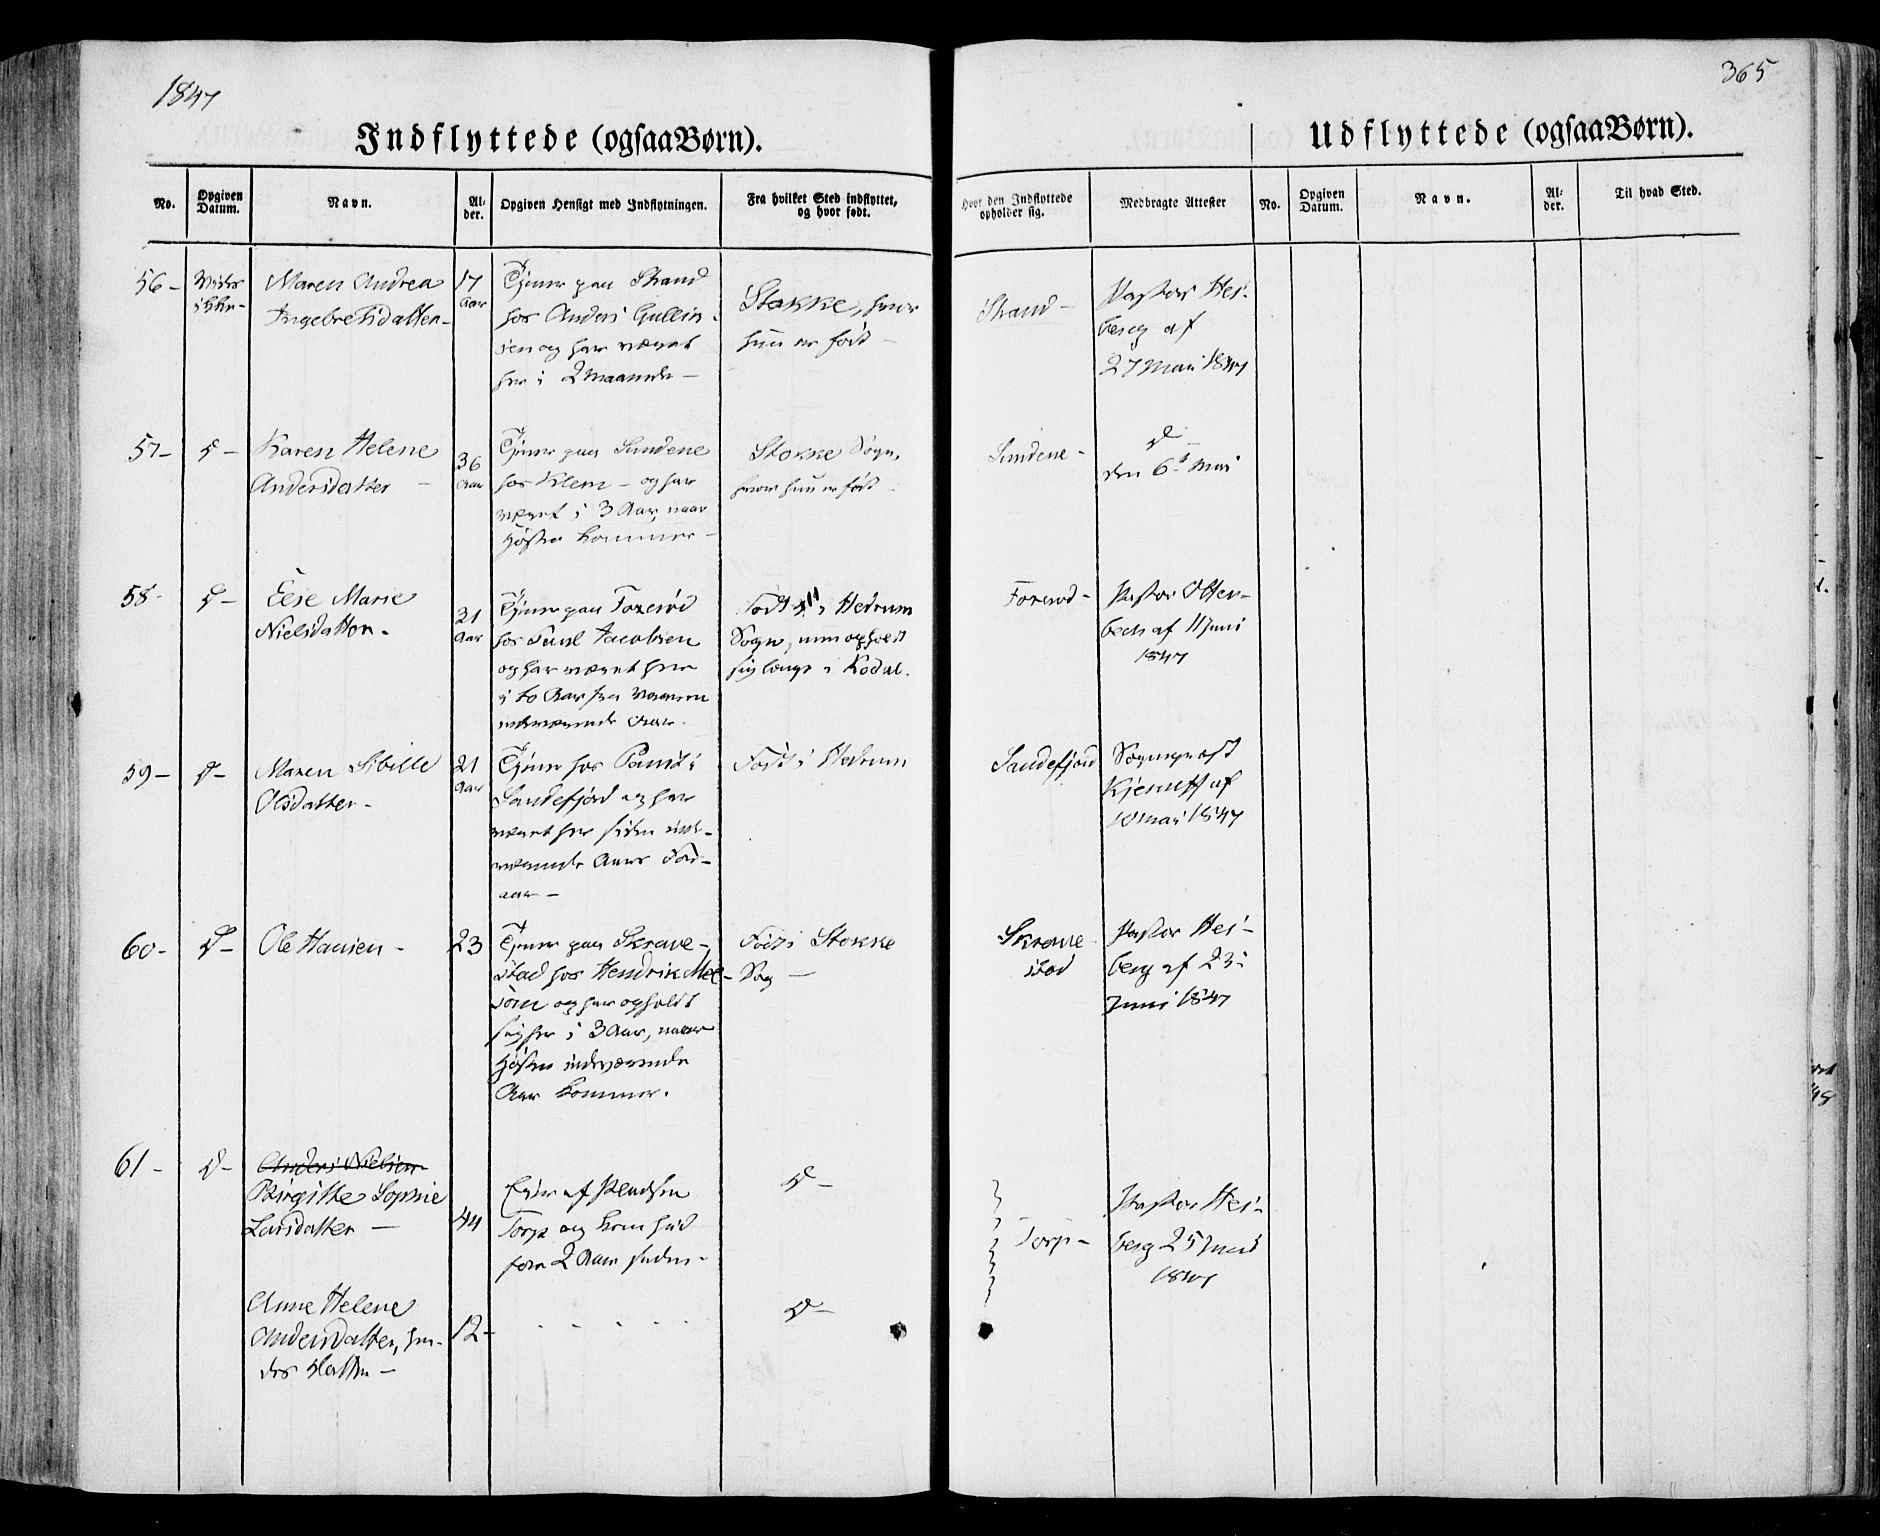 1847
365
Indflyttede (ogsaa Børn).
Udflyttede (ogsaa Børn).
No.
Opgiven Datum.
Navn.
Al-
der.
Opgiven Hensigt med Indflytningen.
Fra hvilket Sted indflyttet,
og hvor født.
Hvor den Indflyttede
opholder sig.
Medbragte Attester
No.
Opgiven Datum.
Navn.
Al-
der.
Til hvad Sted.
56-
Vides
ikke-
Maren Andrea
Ingebretsdatter-
17
Aar
Tjener paa Strand
hos Anders Gullik-
sen og har været
her i 2 Maaneder-
Stokke, hvor
hun er født-
Strand-
Pastor Hei-
berg af
27 Mai 1847
57-
D-
Karen Helene
Andersdatter-
36
Aar
Tjener paa Sundene
hos Klem- og har
været i 3 Aar, naar
Høsten kommer-
Stokke Sogn,
hvor hun er født-
Sundene-
D
den 6te Mai
58-
D-
Else Marie
Nielsdatter-
21
Aar
Tjener paa Foxerød
hos Jacobsen
og har været her
i to Aar fra Vaaren
indeværende Aar.
Født i Hedrum
Sogn, men opholdt
sig længe i Kodal.
Foxerød-
Pastor Otter-
bech af 11 Juni
1847
59-
D-
Maren Sibille
Olsdatter-
21
Aar
Tjener hos i
Sandefjord og har
været her siden inde-
værende Aars For-
aar-
Født i Hedrum
Sandefjord
Sogneprest
Kjerulff af
10 Mai 1847
60-
D-
Ole Hansen-
23
Tjener paa Skrave-
stad hos Hendrik Mel-
som og har opholdt
sig her i 3 Aar, naar
Høsten indeværende
Aar kommer.
Født i Stokke
Sogn-
Skrave
stad
Pastor Hei-
berg af 23
Juni 1847
61-
D-
Anders Nielsen
Birgitte Sophie
Larsdatter-
44
Eier af Pladsen
Torp og kom hid
for 2 Aar siden-
D-
Torp-
Pastor Hei-
berg 25 Juni
1847
Anne Helene
Andersdatter, hen-
des Datter-
12-
- - - - -
D-